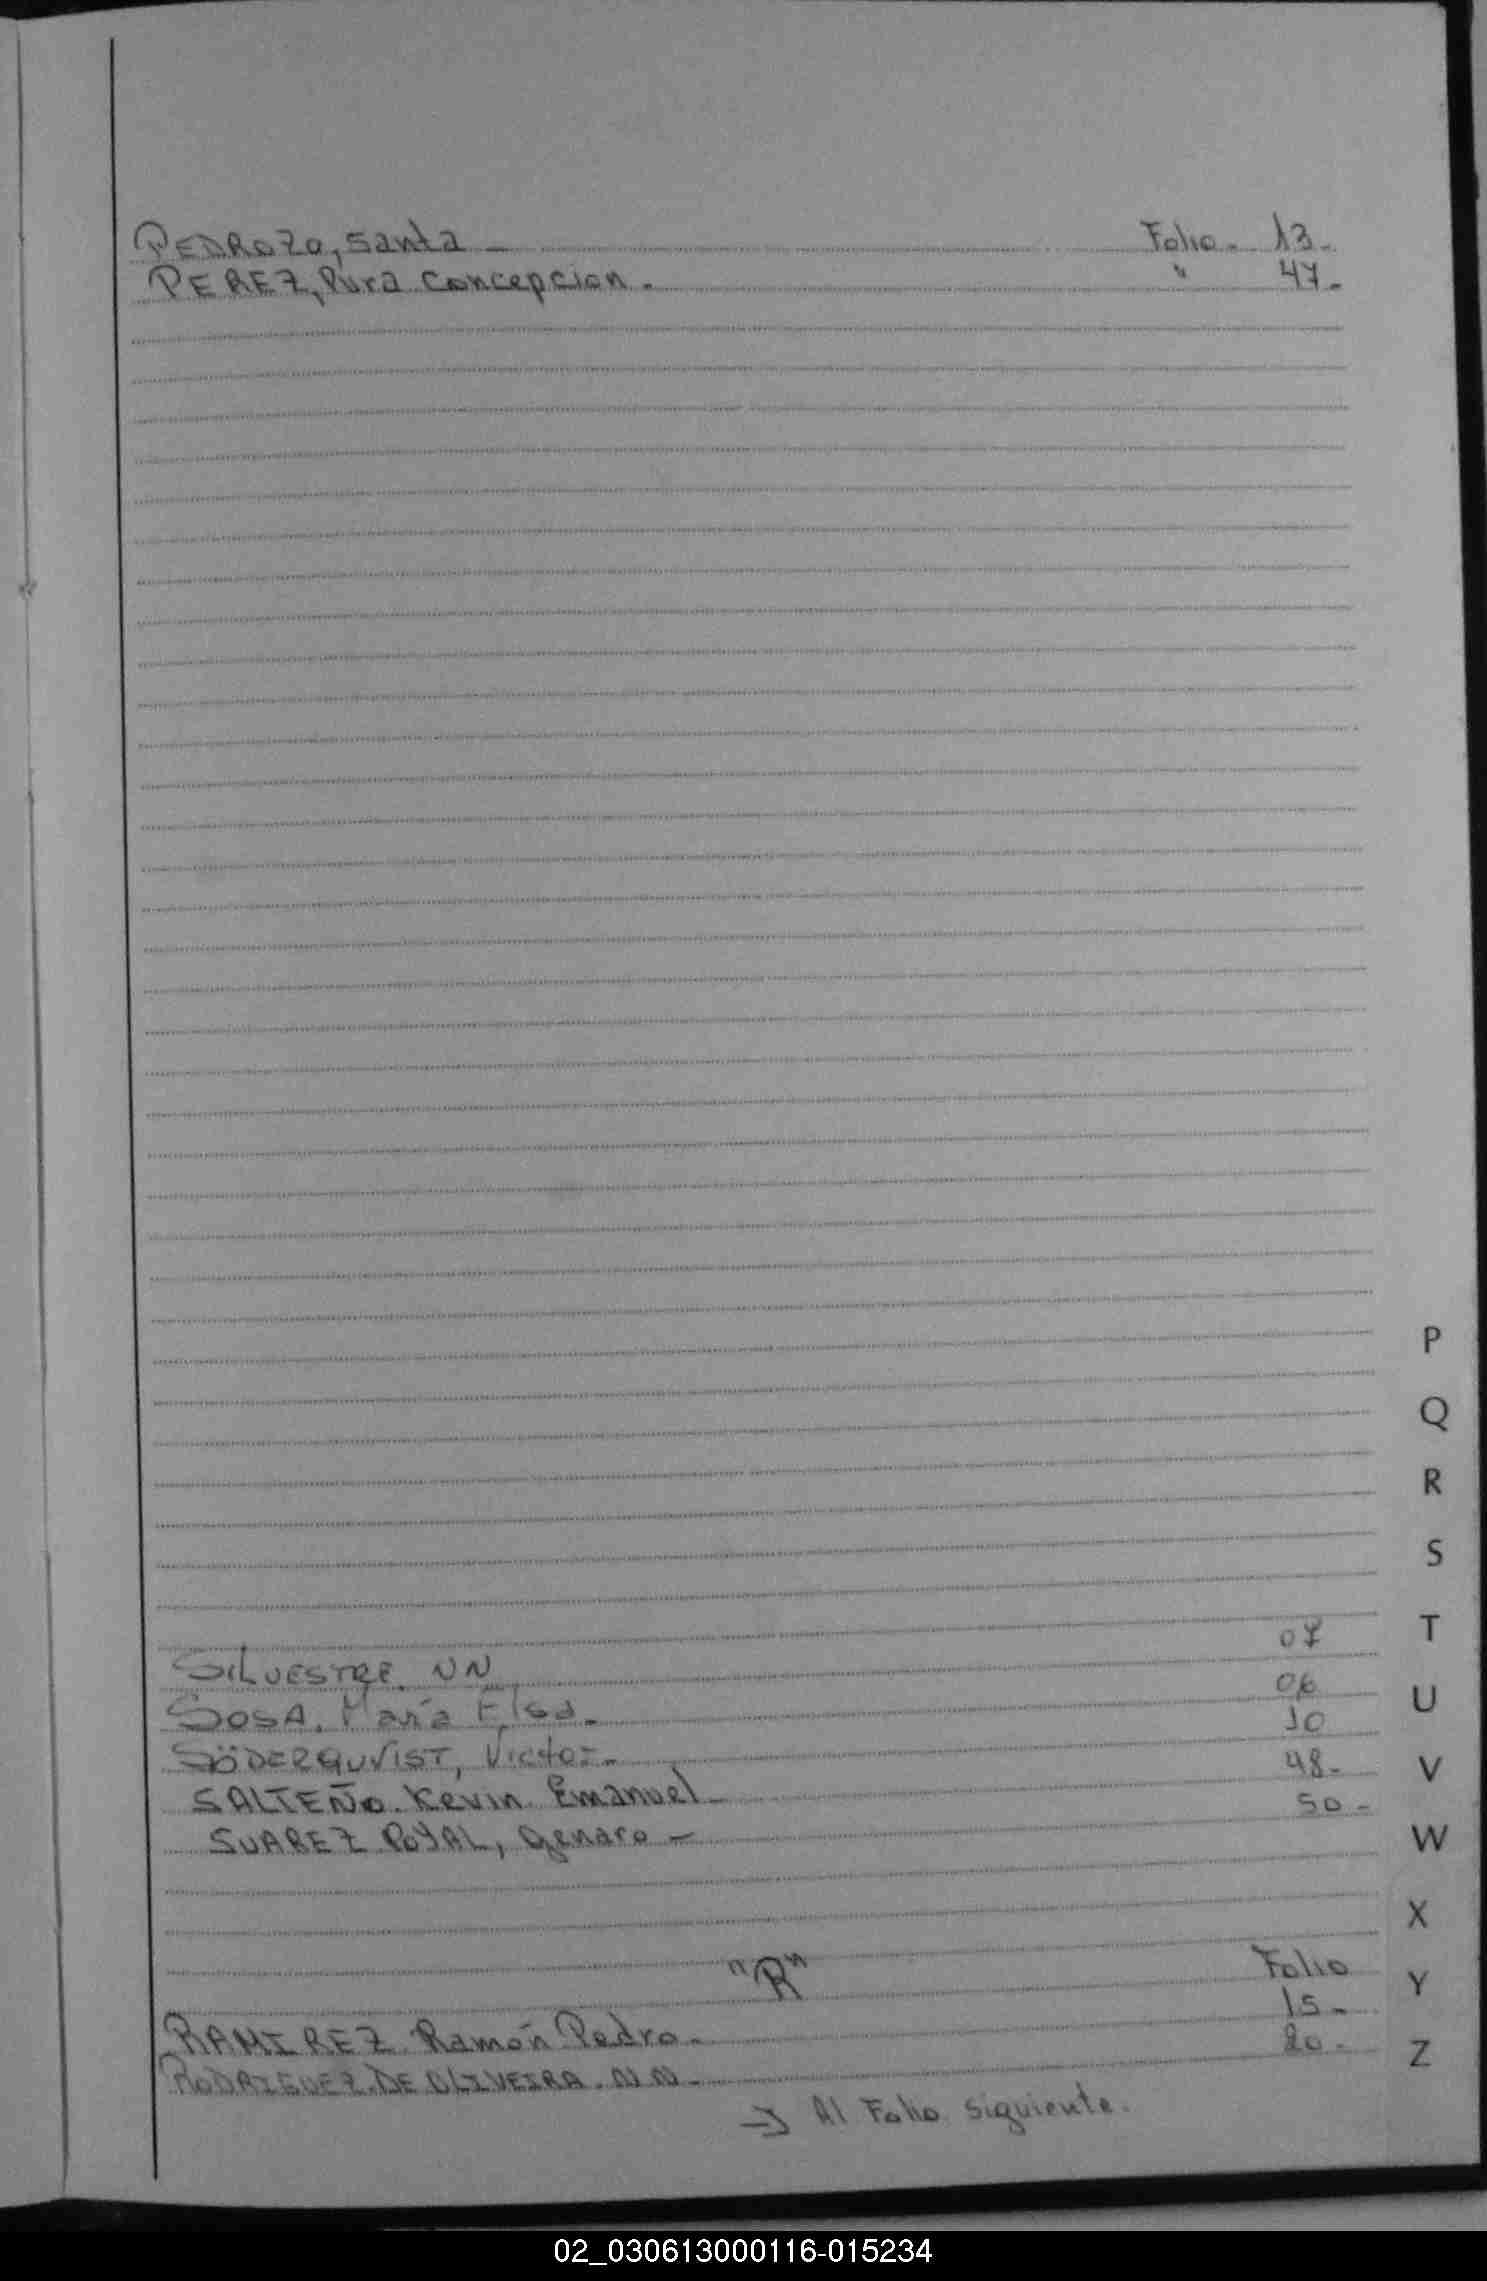 PEDROZO, Santa - Folio - 13 -
PEREZ, Pura Concepcion. " 47 -
P
Q
R
S
T
U
V
W
X
Y
Z
SILVESTRE, NN 07
SOSA, María Elsa. - 06
SÖDERQUVIST, Victor. - 10
SALTEÑO. Kevin Emanuel - 48 -
SUAREZ POYAL, Genaro - 50 -
"R" Folio
RAMIREZ. Ramón Pedro. - 15 -
RODRIGUEZ. DE OLIVEIRA. NN. - 20 -
→ Al Folio siguiente.
02_030613000116-015234